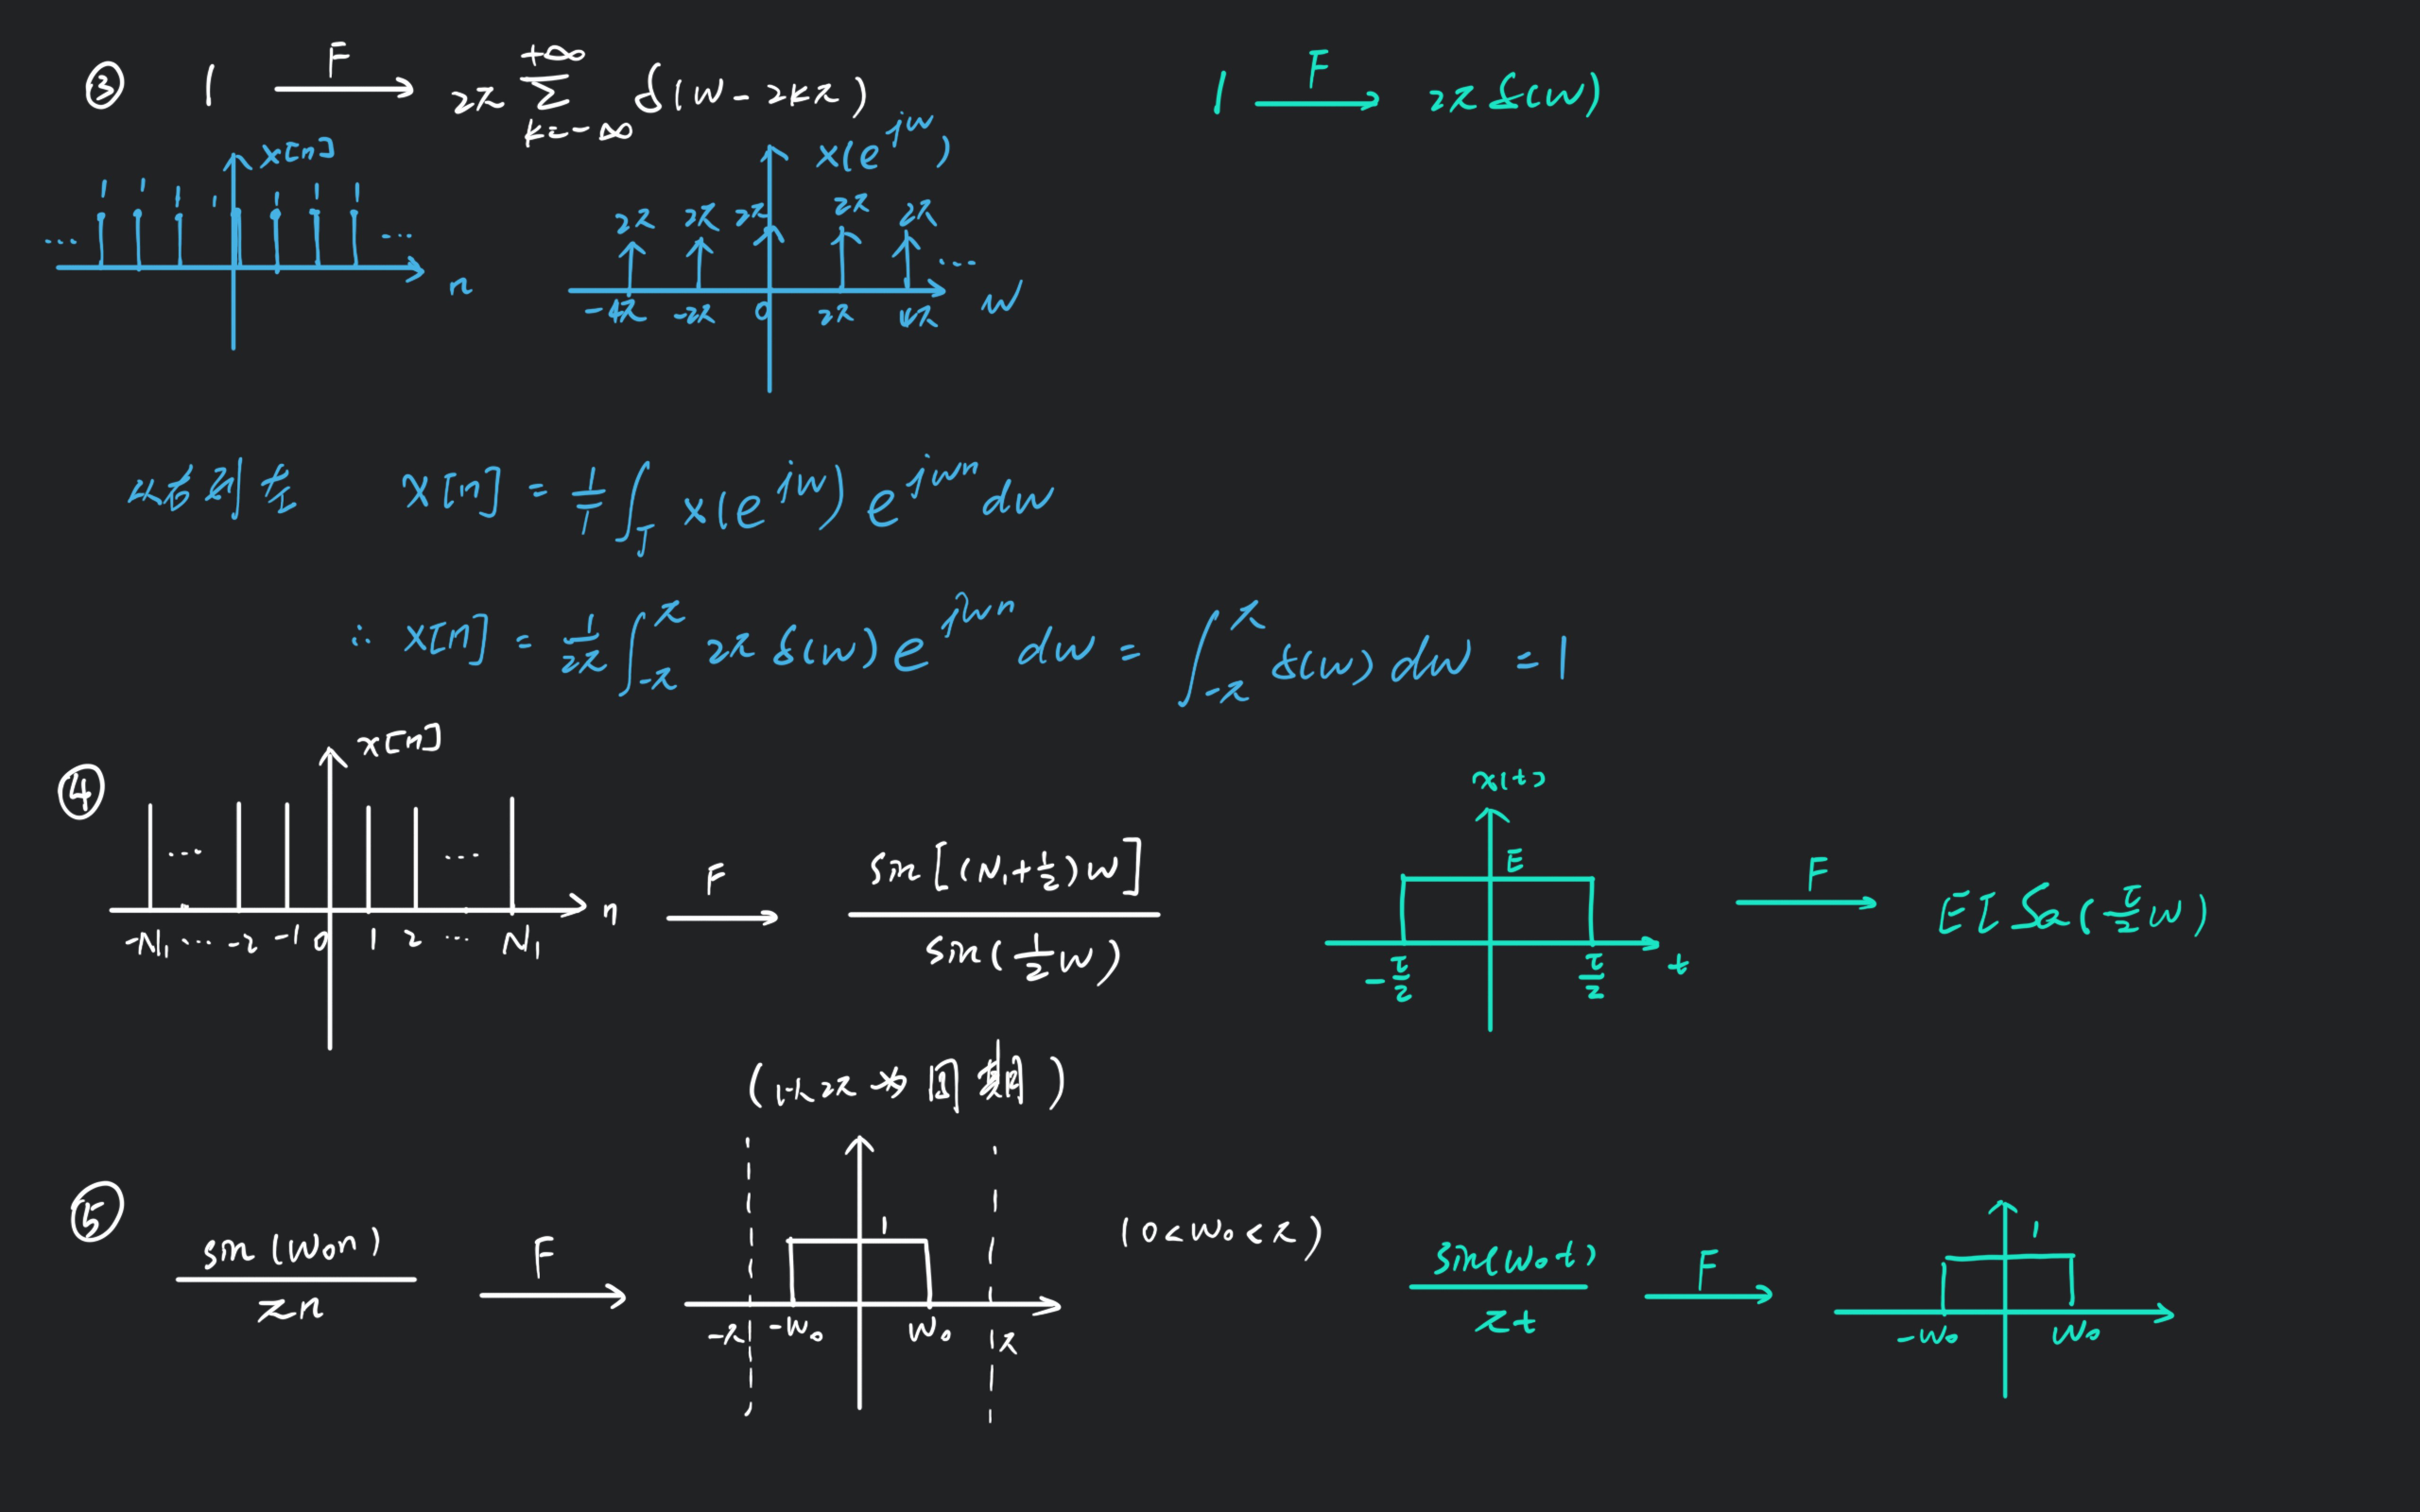 ③ 1 —F→ 2π ∑_{k=-∞}^{+∞} δ(w-2kπ)
1 —F→ 2πδ(w)
x[n]
1 1 1 1 1 1 1
... ...
n
X(e^{jw})
2π 2π 2π 2π 2π
...
-4π -2π 0 2π 4π w
x[n] = 1/T ∫_T X(e^{jw}) e^{jwn} dw
∴ x[n] = 1/2π ∫_{-π}^{π} 2πδ(w) e^{jwn} dw = ∫_{-π}^{π} δ(w) dw = 1
④ x[n]
... ...
-N₁ ... -2 -1 0 1 2 ... N₁ n
—F→ sin[(N₁+1/2)w] / sin(1/2 w)
(以2π为周期)
x(t)
E
-τ/2 τ/2 t
—F→ Eτ Sa(τ/2 w)
⑤ sin(w₀n) / πn —F→
1
-π -w₀ w₀ π
(0<w₀<π)
sin(w₀t) / πt —F→
1
-w₀ w₀